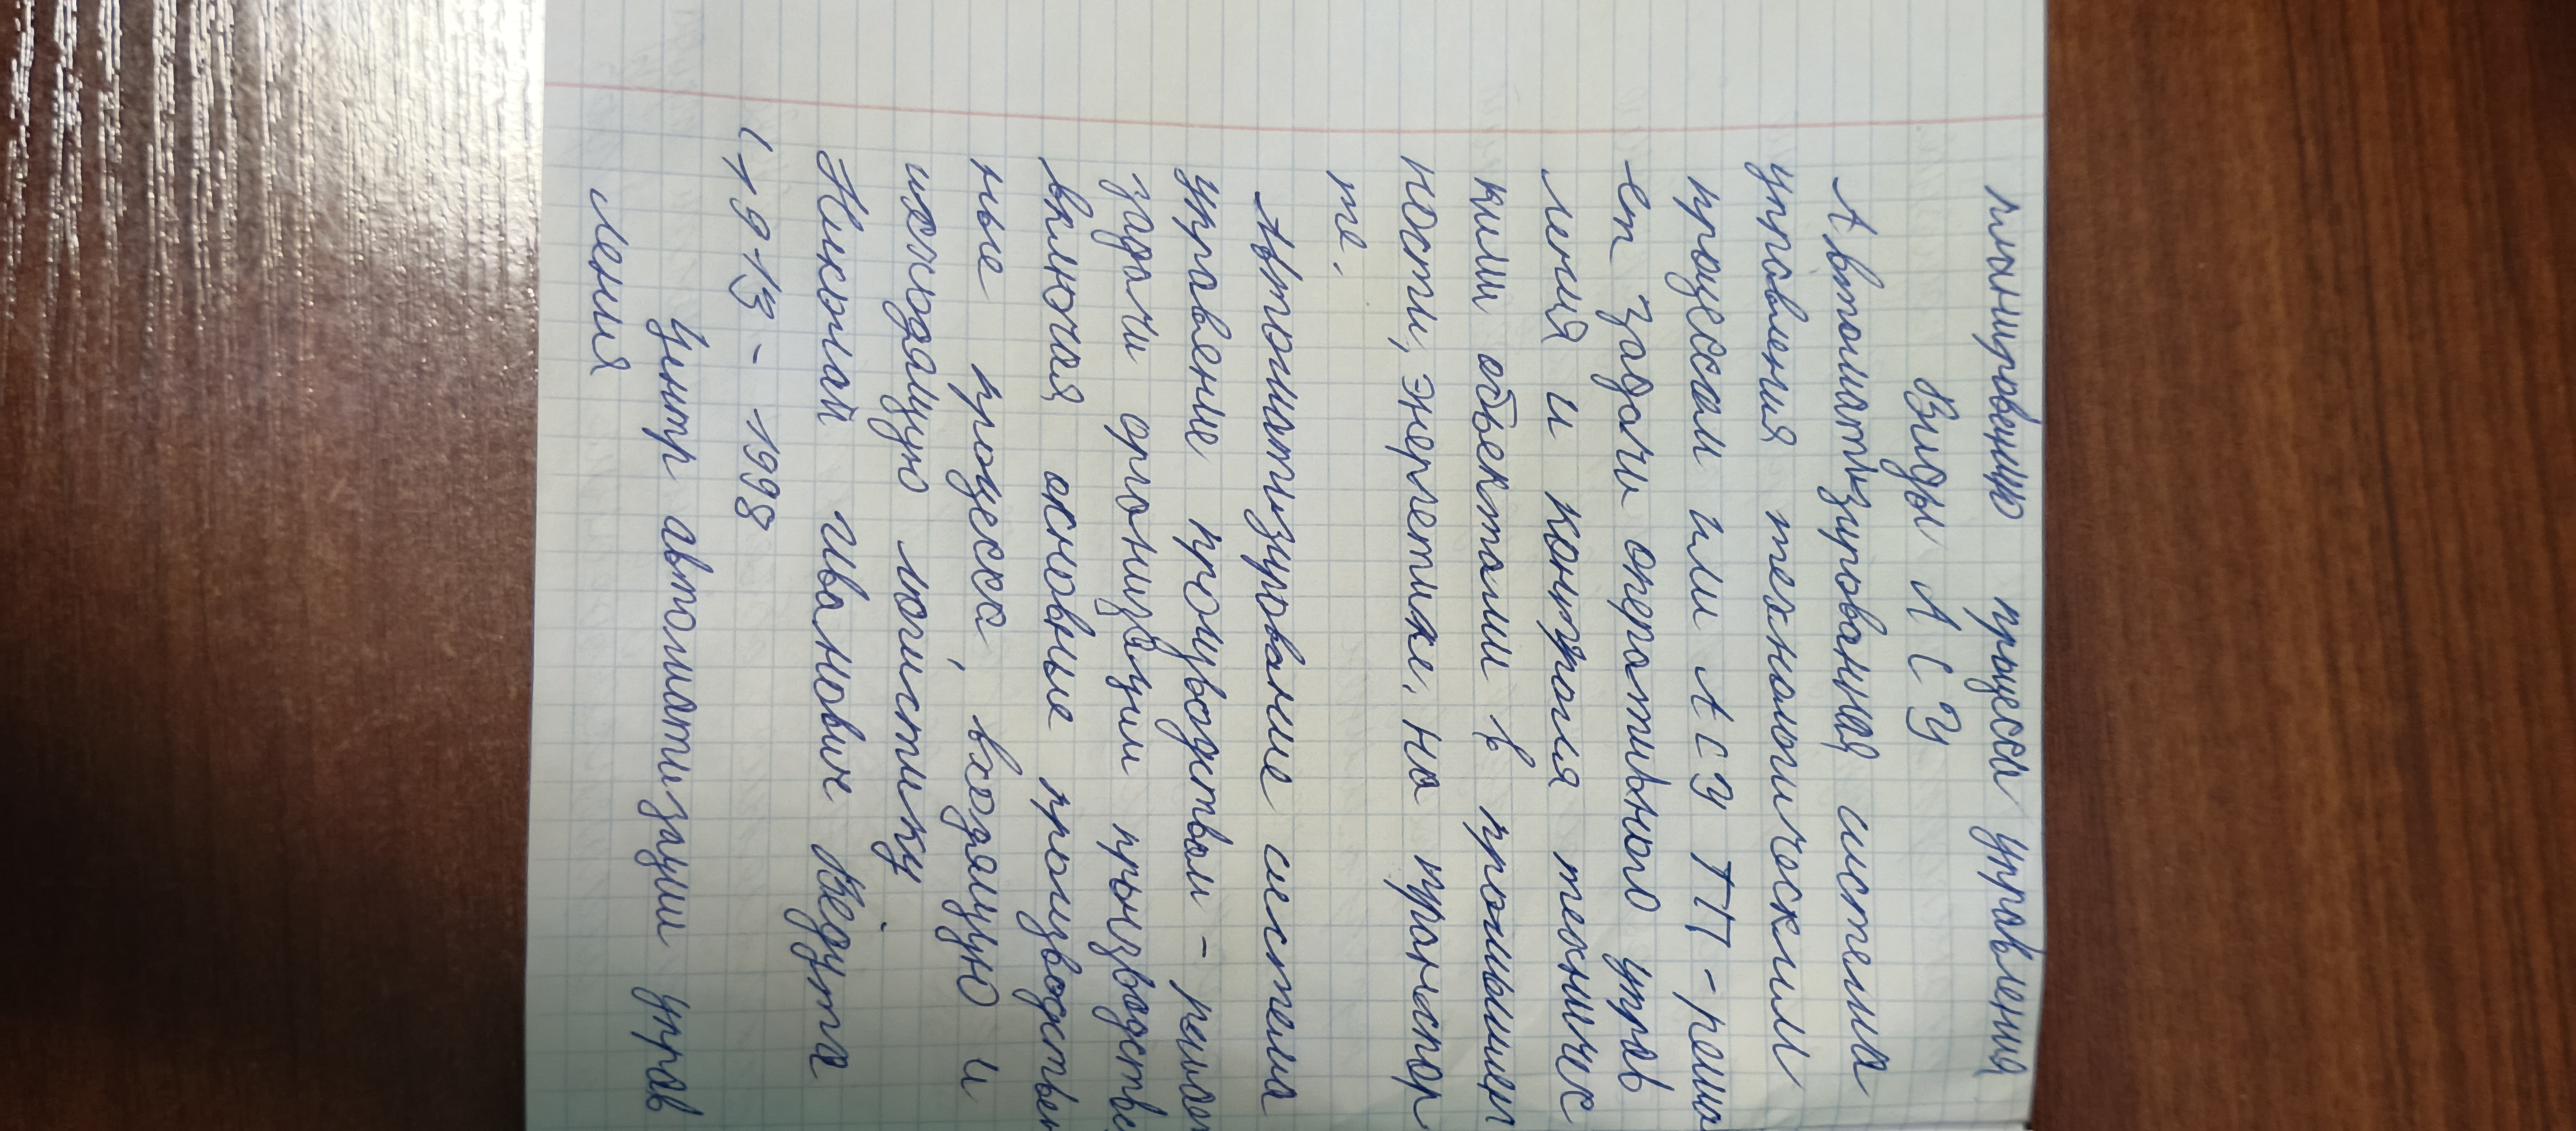 планированию процесса управления
Виды АСУ
Автоматизированная система
управления технологическим
процессом или АСУ ТП - реша
ет задачи оперативного управ
ления и контроля техничес
кими объектами в промышлен
ности, энергетике, на транспор
те.
Автоматизирование система
управение произвоdством - решает
задачи организации производстве
включая основные производствен
ные процесса, входящую и
исходящую логистику
Николай Иванович Ведута
(1913 - 1998
Центр автоматизации управ
ления